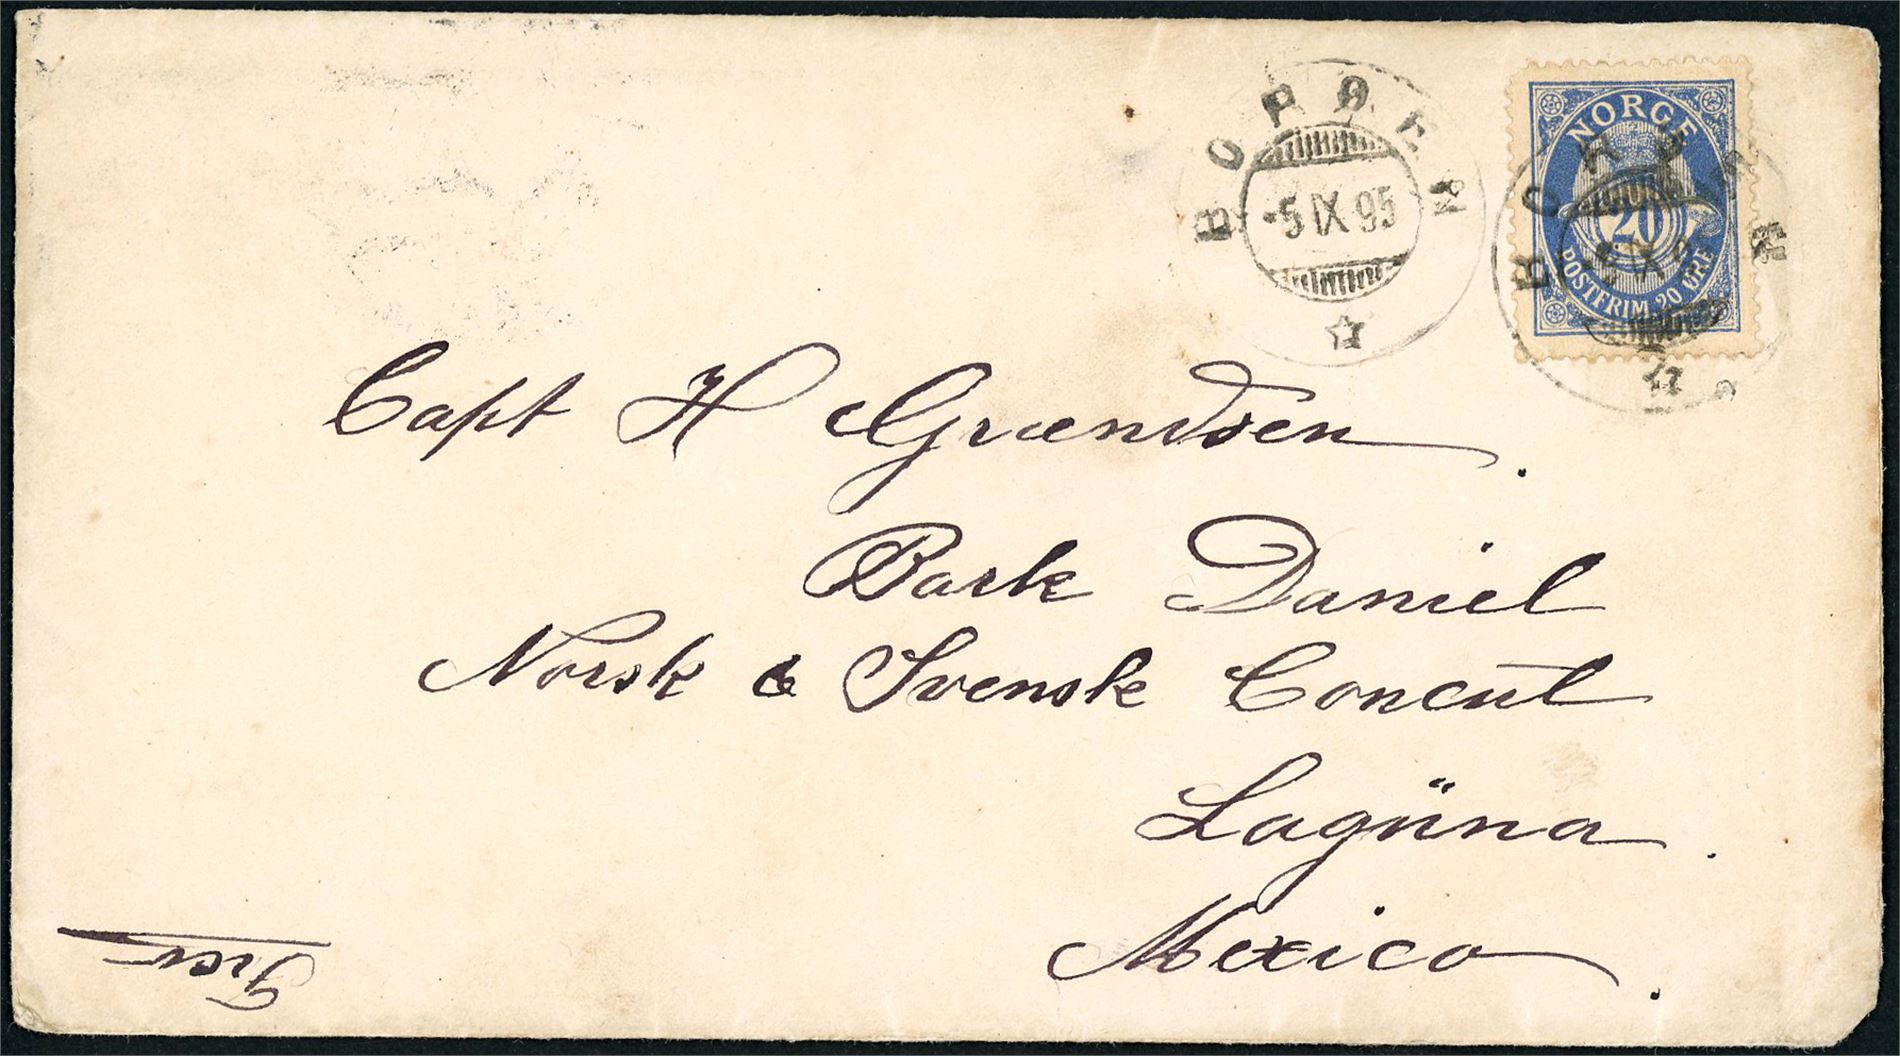 BORØEN
5 IX 95
NORGE
20
POSTFRIM. 20 ØRE
Capt H Grændsen.
Bark Daniel
Norsk & Svensk Concul
Lagūna.
Mexico.